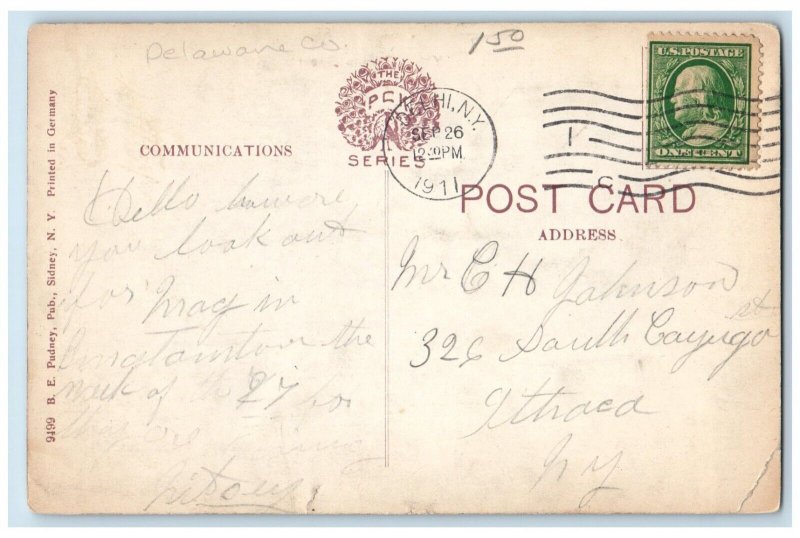 Delaware Co.
150
THE
PCK
SERIES
DELHI, N.Y.
SEP 26
1911
U.S. POSTAGE
ONE CENT
COMMUNICATIONS
POST CARD
ADDRESS
9499 B. E. Pudney, Pub., Sidney, N. Y. Printed in Germany
Hello
you look out
for Mag in
the
week of the 27 for
they are
Mr C H Johnson
326 South Cayuga st
Ithaca
N Y